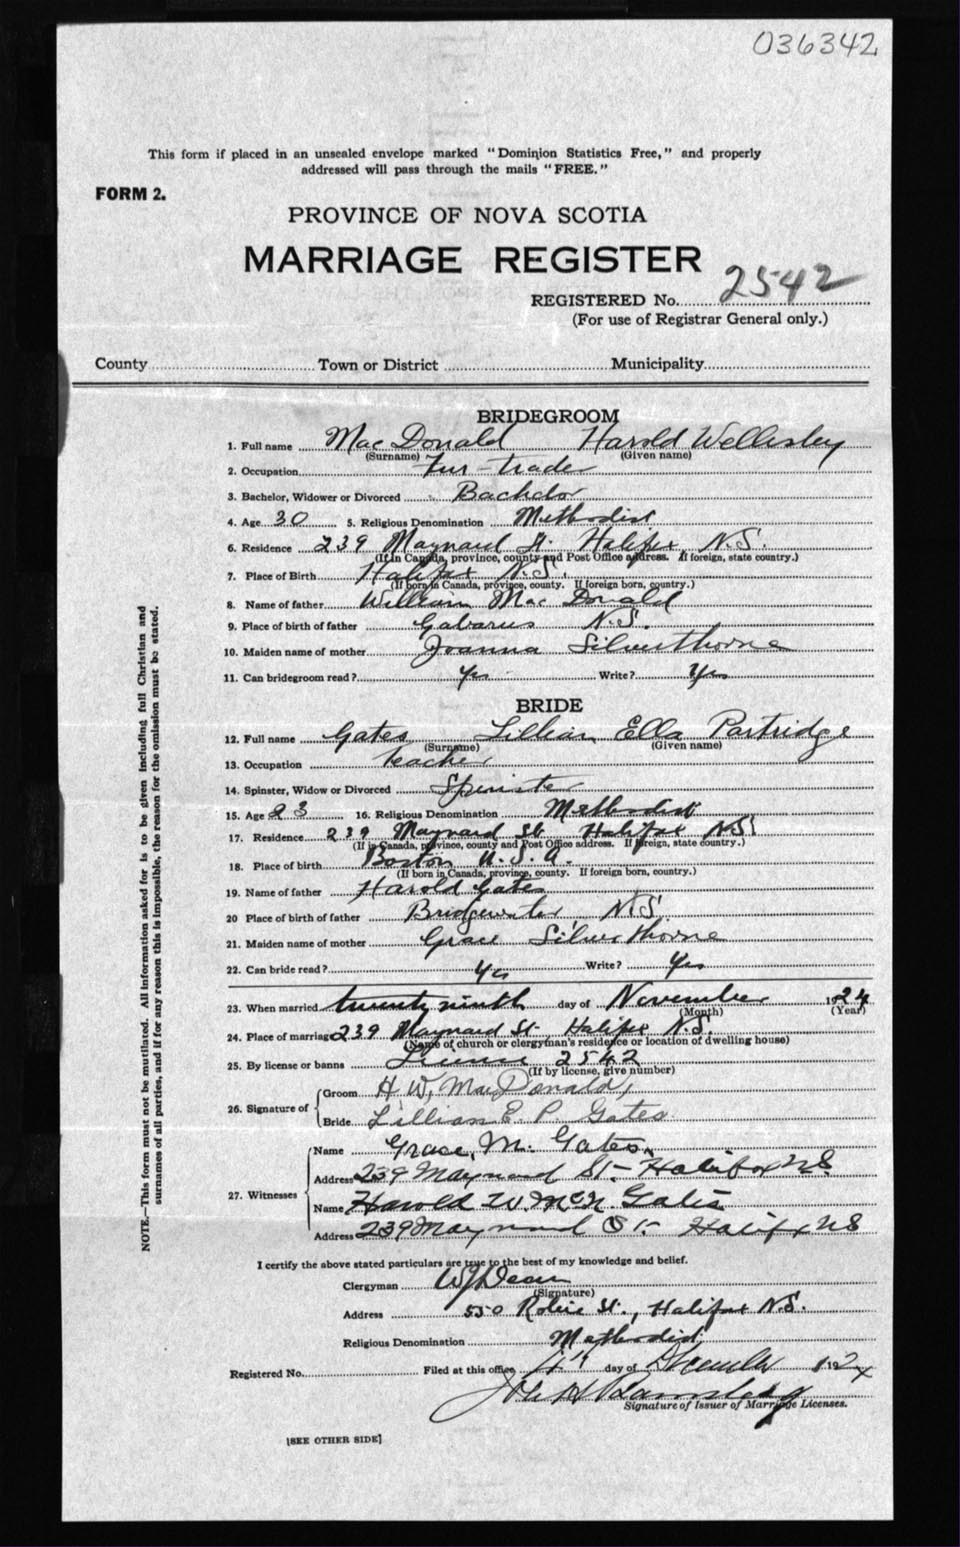 036342
This form if placed in an unsealed envelope marked "Dominion Statistics Free," and properly
addressed will pass through the mails "FREE."
FORM 2.
PROVINCE OF NOVA SCOTIA
MARRIAGE REGISTER
REGISTERED No. 2542
(For use of Registrar General only.)
County Town or District Municipality
BRIDEGROOM
1. Full name Mac Donald Harold Wellesley
(Surname) (Given name)
2. Occupation Fur-trader
3. Bachelor, Widower or Divorced Bachelor
4. Age 30 5. Religious Denomination Methodist
6. Residence 239 Maynard St. Halifax N.S.
(If in Canada, province, county and Post Office address. If foreign, state country.)
7. Place of Birth Halifax N.S.
(If born in Canada, province, county. If foreign born, country.)
8. Name of father William Mac Donald
9. Place of birth of father Gabarus N.S.
10. Maiden name of mother Joanna Silverthorne
11. Can bridegroom read? Yes Write? Yes
BRIDE
12. Full name Gates Lillian Ella Partridge
(Surname) (Given name)
13. Occupation teacher
14. Spinster, Widow or Divorced Spinster
15. Age 23 16. Religious Denomination Methodist
17. Residence 239 Maynard St. Halifax N.S.
(If in Canada, province, county and Post Office address. If foreign, state country.)
18. Place of birth Boston U.S.A.
(If born in Canada, province, county. If foreign born, country.)
19. Name of father Harold Gates
20 Place of birth of father Bridgewater, N.S.
21. Maiden name of mother Grace Silverthorne
22. Can bride read? Yes Write? Yes
23. When married twenty ninth day of November 1924
(Month) (Year)
24. Place of marriage 239 Maynard St. Halifax N.S.
(Name of church or clergyman's residence or location of dwelling house)
25. By license or banns License 2542
(If by license, give number)
26. Signature of Groom H. W. MacDonald,
Bride Lillian E. P. Gates.
27. Witnesses Name Grace M. Gates
Address 239 Maynard St- Halifax NS
Name Harold W. McN. Gates
Address 239 Maynard St- Halifax NS
I certify the above stated particulars are true to the best of my knowledge and belief.
Clergyman WJ Dean
(Signature)
Address 550 Robie St., Halifax N.S.
Religious Denomination Methodist
Registered No. Filed at this office 4th day of December 1924
Signature of Issuer of Marriage Licenses.
[SEE OTHER SIDE]
NOTE.—This form must not be mutilated. All information asked for is to be given including full Christian and
surnames of all parties, and if for any reason this is impossible, the reason for the omission must be stated.